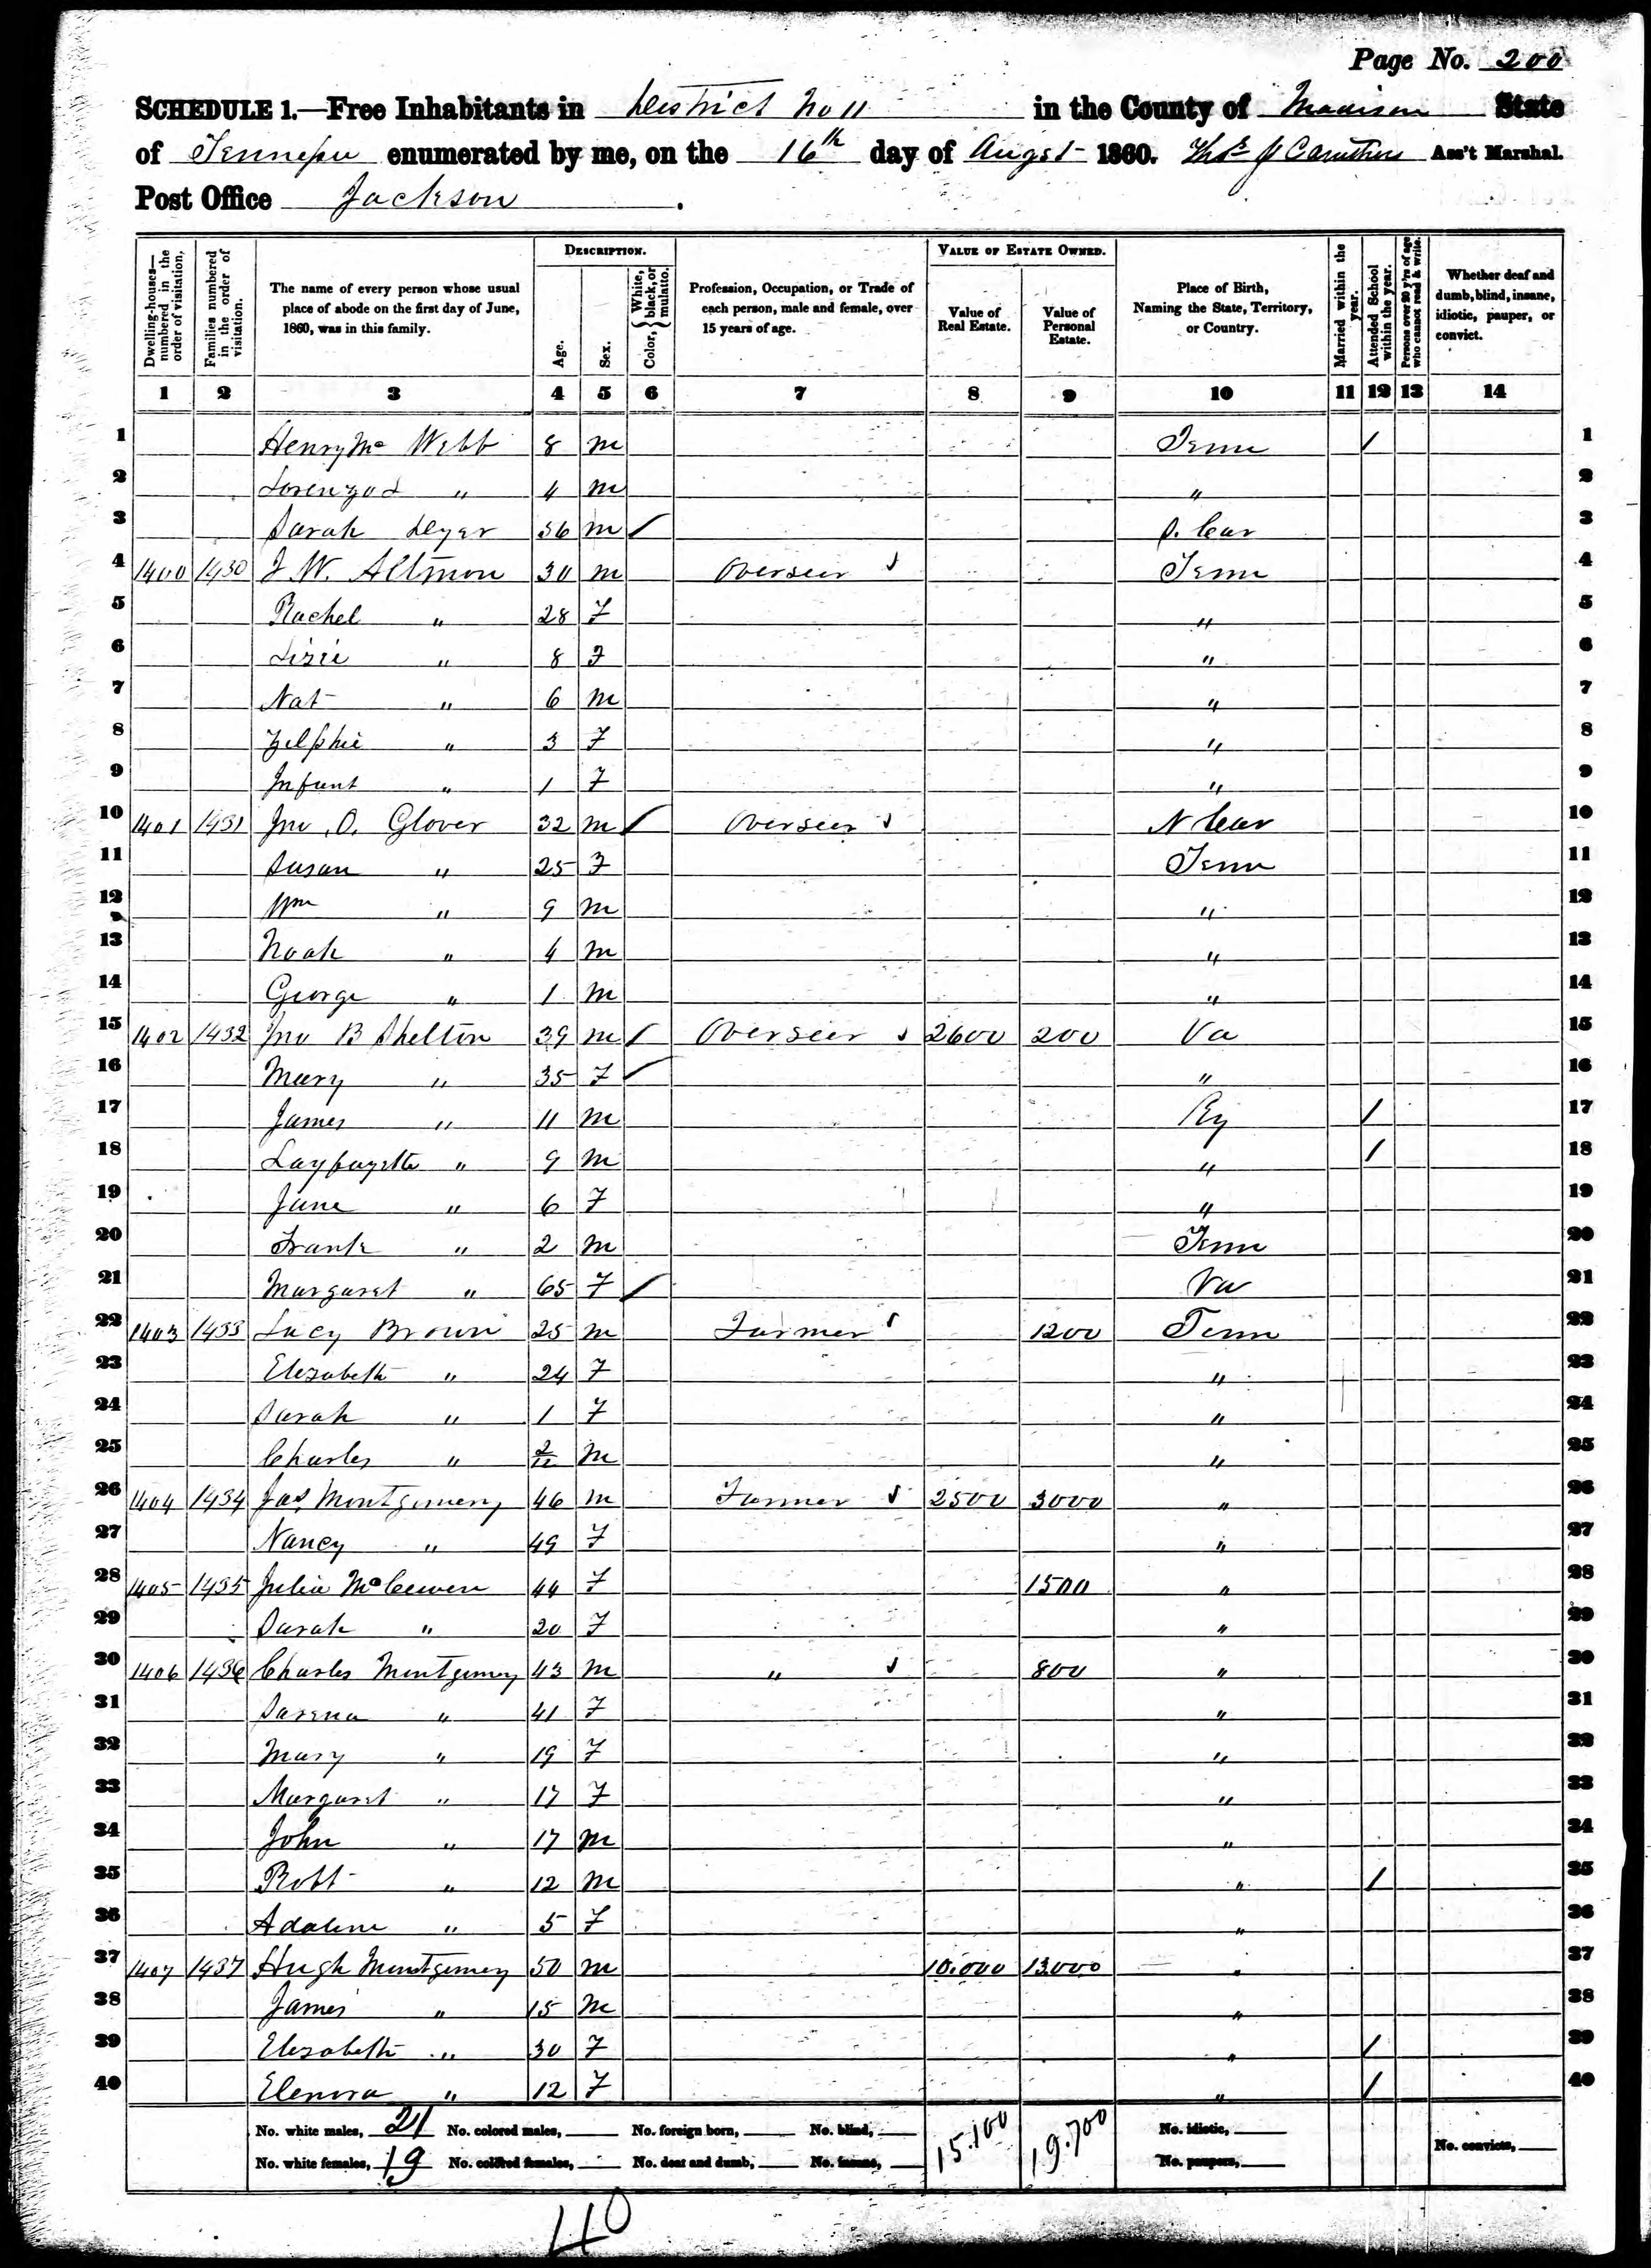 Page No. 200
SCHEDULE 1.—Free Inhabitants in District No 11 in the County of Madison State
of Tennessee enumerated by me, on the 16th day of Augst 1860. Thos J Caruthers Ass't Marshal.
Post Office Jackson.
Dwelling-houses—numbered in the order of visitation.
Families numbered in the order of visitation.
The name of every person whose usual place of abode on the first day of June, 1860, was in this family.
DESCRIPTION.
Age.
Sex.
Color, { White, black, or mulatto.
Profession, Occupation, or Trade of each person, male and female, over 15 years of age.
VALUE OF ESTATE OWNED.
Value of Real Estate.
Value of Personal Estate.
Place of Birth, Naming the State, Territory, or Country.
Married within the year.
Attended School within the year.
Persons over 20 y'rs of age who cannot read & write.
Whether deaf and dumb, blind, insane, idiotic, pauper, or convict.
1 2 3 4 5 6 7 8 9 10 11 12 13 14
1 Henry Mc Webb 8 m Tenn / 1
2 Lorenzo d " 4 m " 2
3 Sarah Dyer 36 m / S. Car 3
4 1400 1430 J W. Altmon 30 m Overseer Tenn 4
5 Rachel " 28 F " 5
6 Lizie " 8 F " 6
7 Nat " 6 m " 7
8 Zelphie " 3 F " 8
9 Infant " 1 F " 9
10 1401 1431 Jno. O. Glover 32 m / Overseer N Car 10
11 Susan " 25 F Tenn 11
12 Wm " 9 m " 12
13 Noah " 4 m " 13
14 George " 1 m " 14
15 1402 1432 Jno B Shelton 39 m / Overseer 2600 200 Va 15
16 Mary " 35 F / " 16
17 James " 11 m Ky / 17
18 Layfayette " 9 m " / 18
19 Jane " 6 F " 19
20 Frank " 2 m Tenn 20
21 Margaret " 65 F / Va 21
22 1403 1433 Lacy Brown 25 m Farmer 1200 Tenn 22
23 Elezabeth " 24 F " 23
24 Sarah " 1 F " 24
25 Charles " m " 25
26 1404 1434 Jas Montgomery 46 m Farmer 2500 3000 " 26
27 Nancy " 49 F " 27
28 1405 1435 Julia McCewen 44 F 1500 " 28
29 Sarah " 20 F " 29
30 1406 1436 Charles Montgomery 43 m " 800 " 30
31 Sarena " 41 F " 31
32 Mary " 19 F " 32
33 Margaret " 17 F " 33
34 John " 17 m " 34
35 Robt " 12 m " / 35
36 Adaline " 5 F " 36
37 1407 1437 Hugh Montgomery 50 m 10.000 13000 " 37
38 James " 15 m " 38
39 Elezabeth " 30 F " / 39
40 Elenora " 12 F " / 40
No. white males, 21 No. colored males, No. foreign born, No. blind, 15.100 19.700 No. idiotic,
No. white females, 19 No. colored females, No. deaf and dumb, No. insane, No. paupers, No. convicts,
40